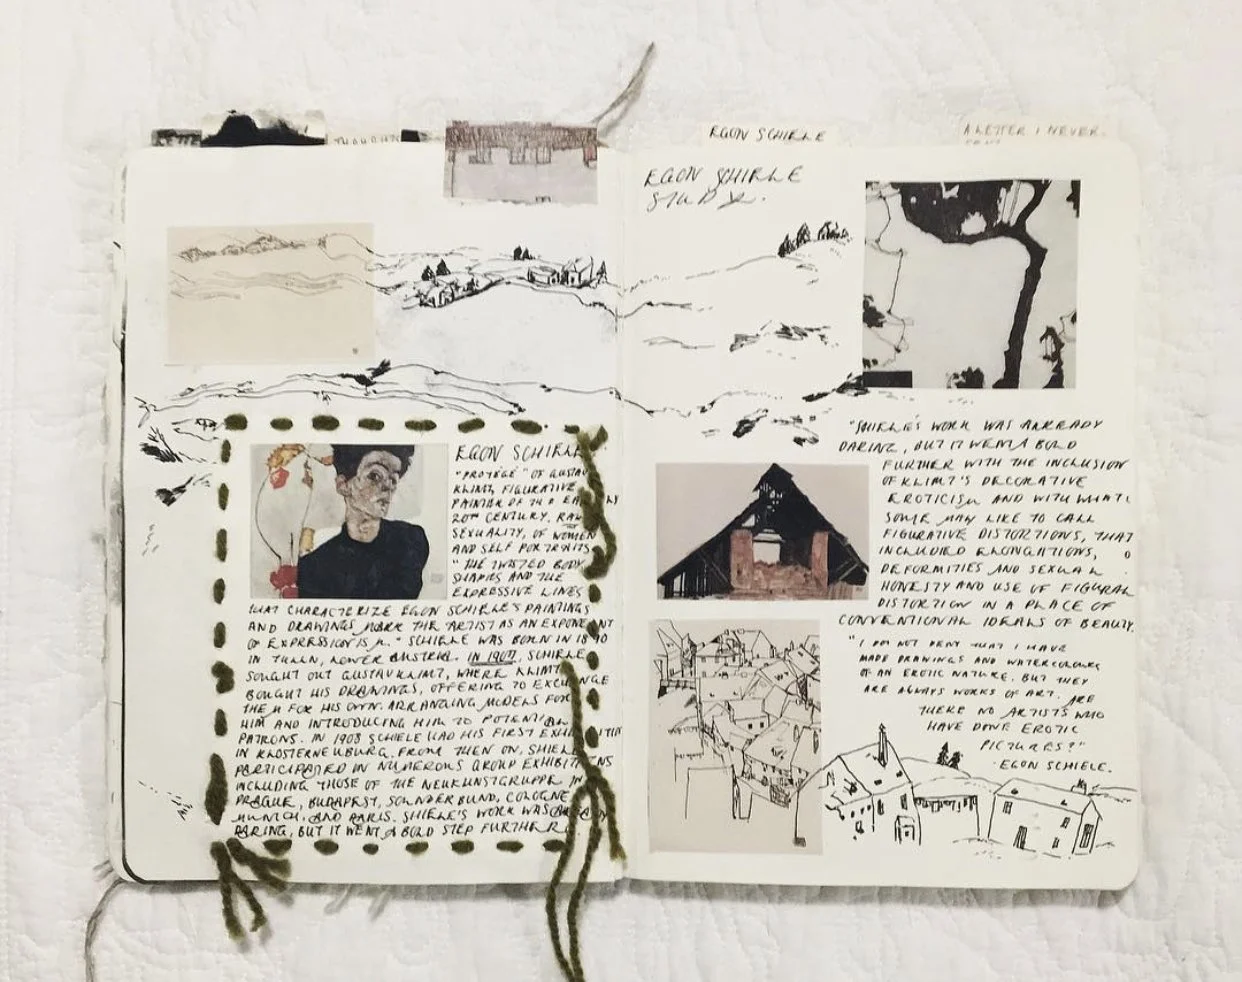 THOUGHTS
EGON SCHIELE
A LETTER I NEVER
SENT
EGON SCHIELE
STUDY.
EGON SCHIELE
"PROTÉGÉ" OF GUSTAV
KLIMT, FIGURATIVE
PAINTER OF THE EARLY
20TH CENTURY, RAW
SEXUALITY, OF WOMEN
AND SELF PORTRAITS.
"THE TWISTED BODY
SHAPES AND THE
EXPRESSIVE LINES
THAT CHARACTERIZE EGON SCHIELE'S PAINTINGS
AND DRAWINGS MARK THE ARTIST AS AN EXPONENT
OF EXPRESSIONISM." SCHIELE WAS BORN IN 1890
IN TULLN, LOWER AUSTRIA. IN 1907, SCHIELE
SOUGHT OUT GUSTAV KLIMT, WHERE KLIMT
BOUGHT HIS DRAWINGS, OFFERING TO EXCHANGE
THEM FOR HIS OWN. ARRANGING MODELS FOR
HIM AND INTRODUCING HIM TO POTENTIAL
PATRONS. IN 1908 SCHIELE HAD HIS FIRST EXHIBITION
IN KLOSTERNEUBURG. FROM THEN ON, SHIELE
PARTICIPATED IN NUMEROUS GROUP EXHIBITIONS
INCLUDING THOSE OF THE NEUKUNSTGRUPPE IN
PRAGUE, BUDAPEST, SONDERBUND, COLOGNE,
MUNICH, AND PARIS. SHIELE'S WORK WAS ALREADY
DARING, BUT IT WENT A BOLD STEP FURTHER
"SHIELE'S WORK WAS ALREADY
DARING, BUT IT WENT A BOLD
FURTHER WITH THE INCLUSION
OF KLIMT'S DECORATIVE
EROTICISM AND WITH WHAT
SOME MAY LIKE TO CALL
FIGURATIVE DISTORTIONS, THAT
INCLUDED ELONGATIONS,
DEFORMITIES AND SEXUAL
HONESTY AND USE OF FIGURAL
DISTORTION IN A PLACE OF
CONVENTIONAL IDEALS OF BEAUTY.
"I DO NOT DENY THAT I HAVE
MADE DRAWINGS AND WATERCOLOURS
OF AN EROTIC NATURE. BUT THEY
ARE ALWAYS WORKS OF ART. ARE
THERE NO ARTISTS WHO
HAVE DONE EROTIC
PICTURES?"
- EGON SCHIELE.